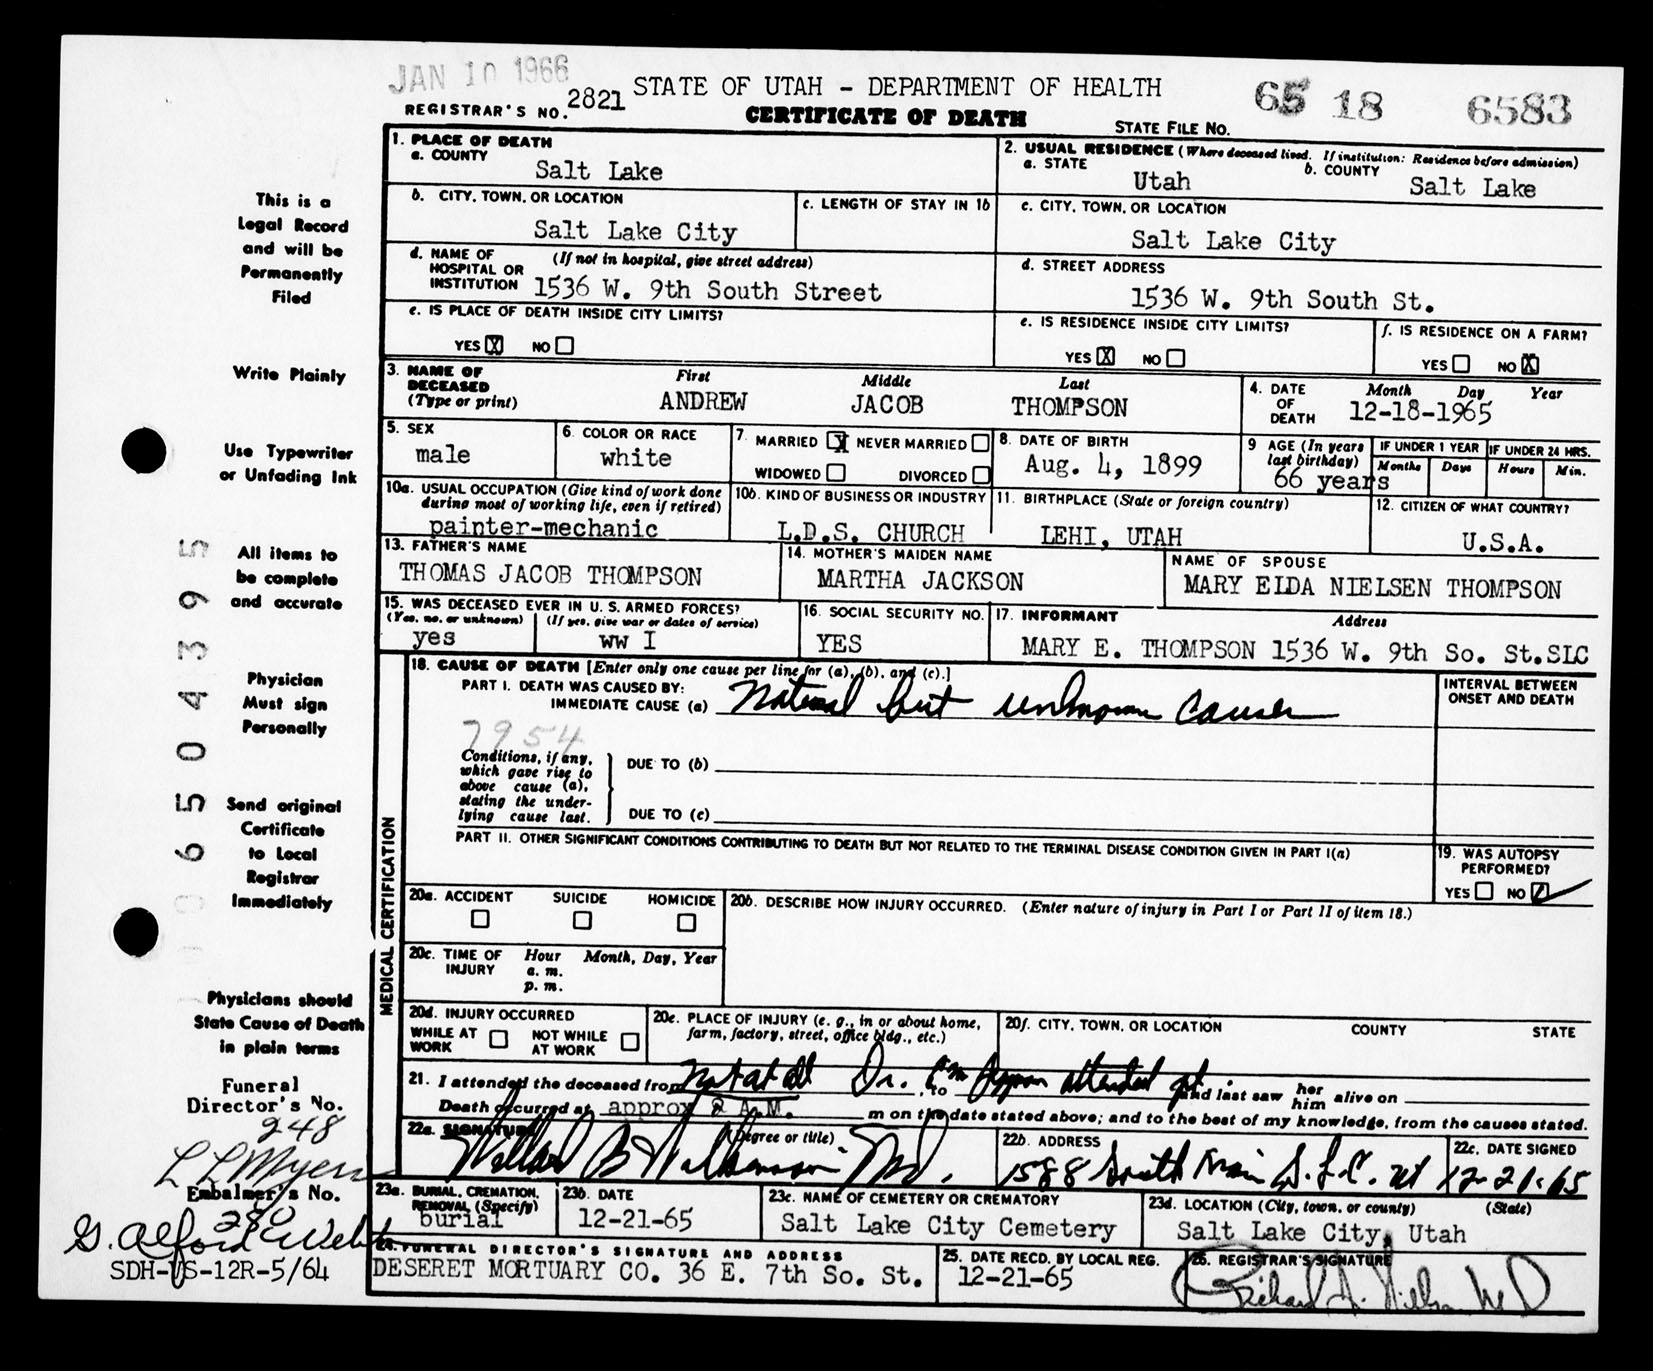 JAN 10 1966
STATE OF UTAH - DEPARTMENT OF HEALTH
65 18 6583
REGISTRAR'S NO. 2821
CERTIFICATE OF DEATH
STATE FILE NO.
This is a
Legal Record
and will be
Permanently
Filed
Write Plainly
Use Typewriter
or Unfading Ink
All items to
be complete
and accurate
Physician
Must sign
Personally
Send original
Certificate
to Local
Registrar
Immediately
Physicians should
State Cause of Death
in plain terms
Funeral
Director's No.
248
L L Myers
Embalmer's No.
280
G. Alford Webb
SDH-VS-12R-5/64
0 6 5 0 4 3 9 5
1. PLACE OF DEATH
a. COUNTY
Salt Lake
2. USUAL RESIDENCE (Where deceased lived. If institution: Residence before admission)
a. STATE Utah b. COUNTY Salt Lake
b. CITY, TOWN, OR LOCATION
Salt Lake City
c. LENGTH OF STAY IN 1b
c. CITY, TOWN, OR LOCATION
Salt Lake City
d. NAME OF HOSPITAL OR INSTITUTION (If not in hospital, give street address)
1536 W. 9th South Street
d. STREET ADDRESS
1536 W. 9th South St.
e. IS PLACE OF DEATH INSIDE CITY LIMITS?
YES X NO
e. IS RESIDENCE INSIDE CITY LIMITS?
YES X NO
f. IS RESIDENCE ON A FARM?
YES NO X
3. NAME OF DECEASED (Type or print)
First Middle Last
ANDREW JACOB THOMPSON
4. DATE OF DEATH
Month Day Year
12-18-1965
5. SEX
male
6. COLOR OR RACE
white
7. MARRIED X NEVER MARRIED
WIDOWED DIVORCED
8. DATE OF BIRTH
Aug. 4, 1899
9 AGE (In years last birthday)
66 years
IF UNDER 1 YEAR
Months Days
IF UNDER 24 HRS.
Hours Min.
10a. USUAL OCCUPATION (Give kind of work done during most of working life, even if retired)
painter-mechanic
10b. KIND OF BUSINESS OR INDUSTRY
L.D.S. CHURCH
11. BIRTHPLACE (State or foreign country)
LEHI, UTAH
12. CITIZEN OF WHAT COUNTRY?
U.S.A.
13. FATHER'S NAME
THOMAS JACOB THOMPSON
14. MOTHER'S MAIDEN NAME
MARTHA JACKSON
NAME OF SPOUSE
MARY ELDA NIELSEN THOMPSON
15. WAS DECEASED EVER IN U. S. ARMED FORCES?
(Yes, no, or unknown) (If yes, give war or dates of service)
yes WW I
16. SOCIAL SECURITY NO.
YES
17. INFORMANT Address
MARY E. THOMPSON 1536 W. 9th So. St.SLC
MEDICAL CERTIFICATION
18. CAUSE OF DEATH [Enter only one cause per line for (a), (b), and (c).]
PART I. DEATH WAS CAUSED BY:
IMMEDIATE CAUSE (a) Natural but unknown causes
INTERVAL BETWEEN ONSET AND DEATH
7954
Conditions, if any, which gave rise to above cause (a), stating the underlying cause last.
DUE TO (b)
DUE TO (c)
PART II. OTHER SIGNIFICANT CONDITIONS CONTRIBUTING TO DEATH BUT NOT RELATED TO THE TERMINAL DISEASE CONDITION GIVEN IN PART I(a)
19. WAS AUTOPSY PERFORMED?
YES NO
20a. ACCIDENT SUICIDE HOMICIDE
20b. DESCRIBE HOW INJURY OCCURRED. (Enter nature of injury in Part I or Part II of item 18.)
20c. TIME OF INJURY Hour Month, Day, Year
a. m.
p. m.
20d. INJURY OCCURRED
WHILE AT WORK NOT WHILE AT WORK
20e. PLACE OF INJURY (e. g., in or about home, farm, factory, street, office bldg., etc.)
20f. CITY, TOWN, OR LOCATION COUNTY STATE
21. I attended the deceased from Not at all Dr. attended pt , to and last saw her him alive on
Death occurred at approx 2 A.M. m on the date stated above; and to the best of my knowledge, from the causes stated.
22a. SIGNATURE (Degree or title)
Md.
22b. ADDRESS
1588 South Main S.L.C. Ut
22c. DATE SIGNED
12-21-65
23a. BURIAL, CREMATION, REMOVAL (Specify)
burial
23b. DATE
12-21-65
23c. NAME OF CEMETERY OR CREMATORY
Salt Lake City Cemetery
23d. LOCATION (City, town, or county) (State)
Salt Lake City, Utah
24. FUNERAL DIRECTOR'S SIGNATURE AND ADDRESS
DESERET MORTUARY CO. 36 E. 7th So. St.
25. DATE RECD. BY LOCAL REG.
12-21-65
26. REGISTRAR'S SIGNATURE
Richard